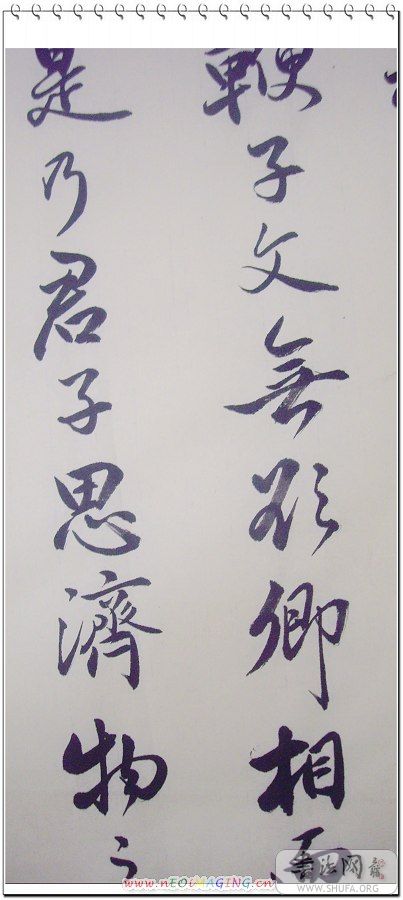 鞭子文無欲卿相而
是乃君子思濟物之
书法网
WWW.SHUFA.ORG
www.nEOiMAGiNG.cn